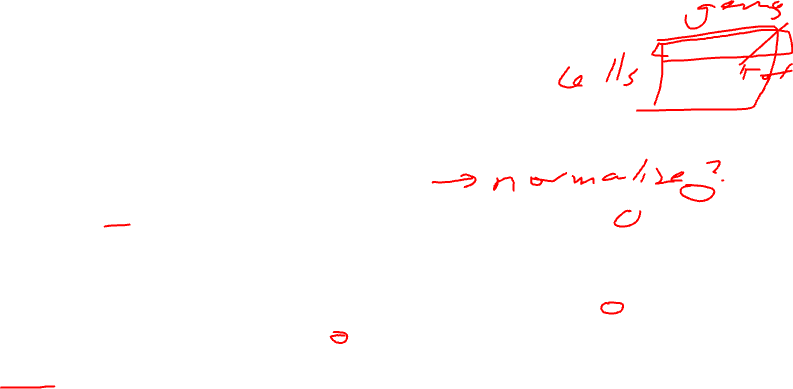 genes
cells
tot
→ normalize?